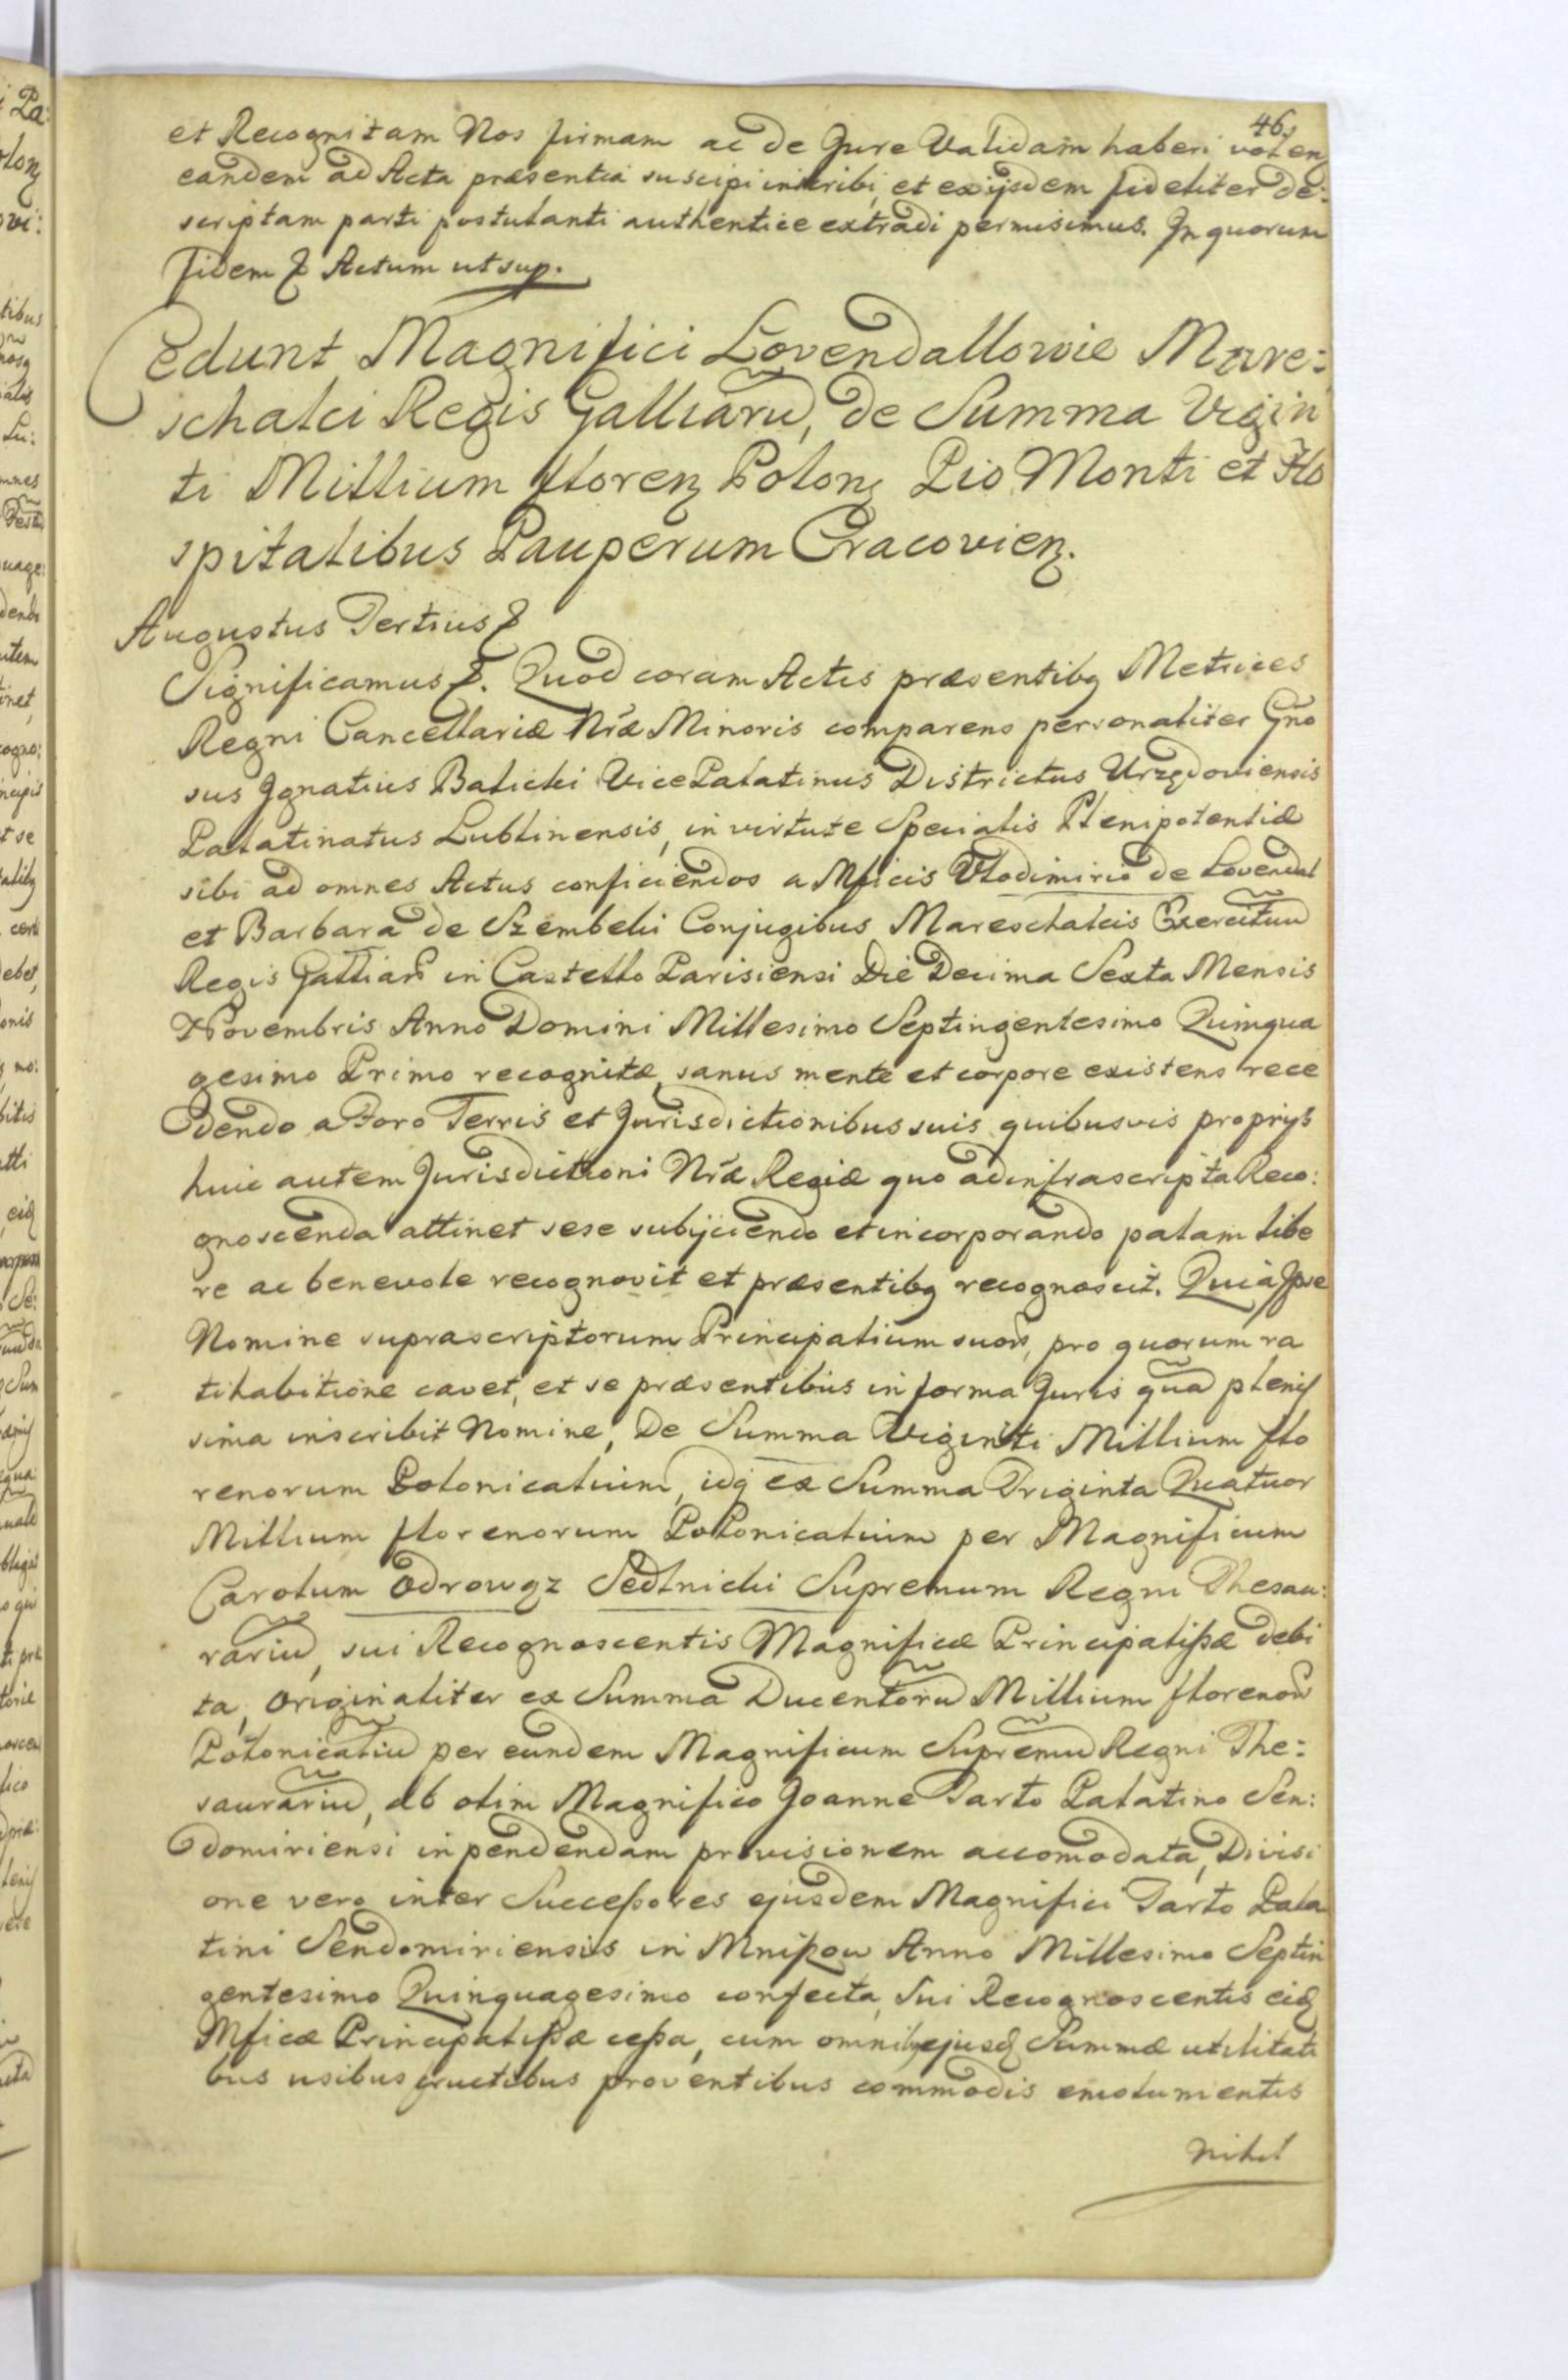 46.
et Recognitam Nos firmam ac de Jure Validam haberi volen
eandem ad Acta præsentia suscipi inscribi, et ex ijsdem fideliter de:
scriptam parti postulanti authentice extradi permisimus. In quorum
fidem & Actum ut sup.
Cedunt Magnifici Lovendallowie Mare:
schalci Regis Galliarũ, de Summa Vigin
ti Millium floren Polon Pio Monti et Ho
spitalibus Pauperum Cracovien.
Augustus Tertius &
Significamus &. Quod coram Actis præsentibq Metrices
Regni Cancellariæ Nræ Minoris comparens personaliter Gño
sus Ignatius Balicki Vice Palatinus Districtus Urzędoviensis
Palatinatus Lublinensis, in virtute Specialis Plenipotentiæ
sibi ad omnes Actus conficiendos a Mficis Vlodimirio de Lovendal
et Barbara de Szembeki Conjugibus Mareschalcis Exercituũ
Regis Galliar in Castello Parisiensi Die Decima Sexta Mensis
Novembris Anno Domini Millesimo Septingentesimo Quinqua
gesimo Primo recognitæ, sanus mente et corpore existens rece
dendo a Foro Terris et Jurisdictionibus suis quibusvis proprijs
huic autem Jurisdictioni Nræ Regiæ quo ad infrascripta Reco:
gnoscenda attinet sese subijciendo et incorporando palam libe
re ac benevole recognovit et præsentibq recognoscit. Quia Ipse
Nomine suprascriptorum Principalium suor, pro quorum ra
tihabitione cavet, et se præsentibus in forma Juris quã plenis
sima inscribit Nomine, De Summa Viginti Millium flo
renorum Polonicalium, idq ex Summa Triginta Quatuor
Millium florenorum Polonicalium per Magnificum
Carolum Odrowąz Sedlnicki Supremum Regni Thesau:
rariũ, sui Recognoscentis Magnificæ Principalissæ debi
ta, Originaliter ex Summa Ducentorũ Millium florenor
Polonicaliũ per eundem Magnificum Supremũ Regni The:
saurariũ, ab olim Magnifico Joanne Tarło Palatino Sen:
domiriensi in pendendam provisionem accomodata, Divisi
one vero inter Successores ejusdem Magnifici Tarło Pala
tini Sendomiriensis in Mniszow Anno Millesimo Septin
gentesimo Quinquagesimo confecta, Sui Recognoscentis eid
Mficæ Principalissæ cessa, cum omnibq ejusd Summæ utilitati
bus usibus fructibus proventibus commodis emolumentis
nihil